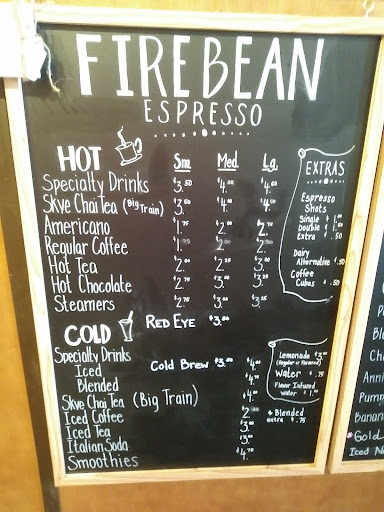 FIREBEAN
ESPRESSO
HOT Sm. Med. Lg.
Specialty Drinks $3.50 $4.00 $4.50
Skye Chai Tea (Big Train) $3.50 $4.00 $4.50
Americano $1.75 $2.00 $2.
Regular Coffee $2.
Hot Tea $2.00 $2.00 $3.25
Hot Chocolate $2.75 $3.00 $3.25
Steamers $2.75 $3.00 $3.25
RED EYE $3.00
COLD
Specialty Drinks
Cold Brew $3.00
Iced $4.00
Blended $4.
Skye Chai Tea (Big Train) $4.00
Iced Coffee $2.
Iced Tea $3.00
Italian Soda $3.00
Smoothies $4.75
EXTRAS
Espresso
Shots
Single $1.00
Double $1.
Extra $.50
Dairy
Alternative $.50
Coffee
Cubes $.50
Lemonade $3.00
(Regular or Flavored)
Water $.75
Flavor Infused
water $1.00
+ Blended
extra $.75
Anni
Pump
Banan
Gold
Iced N